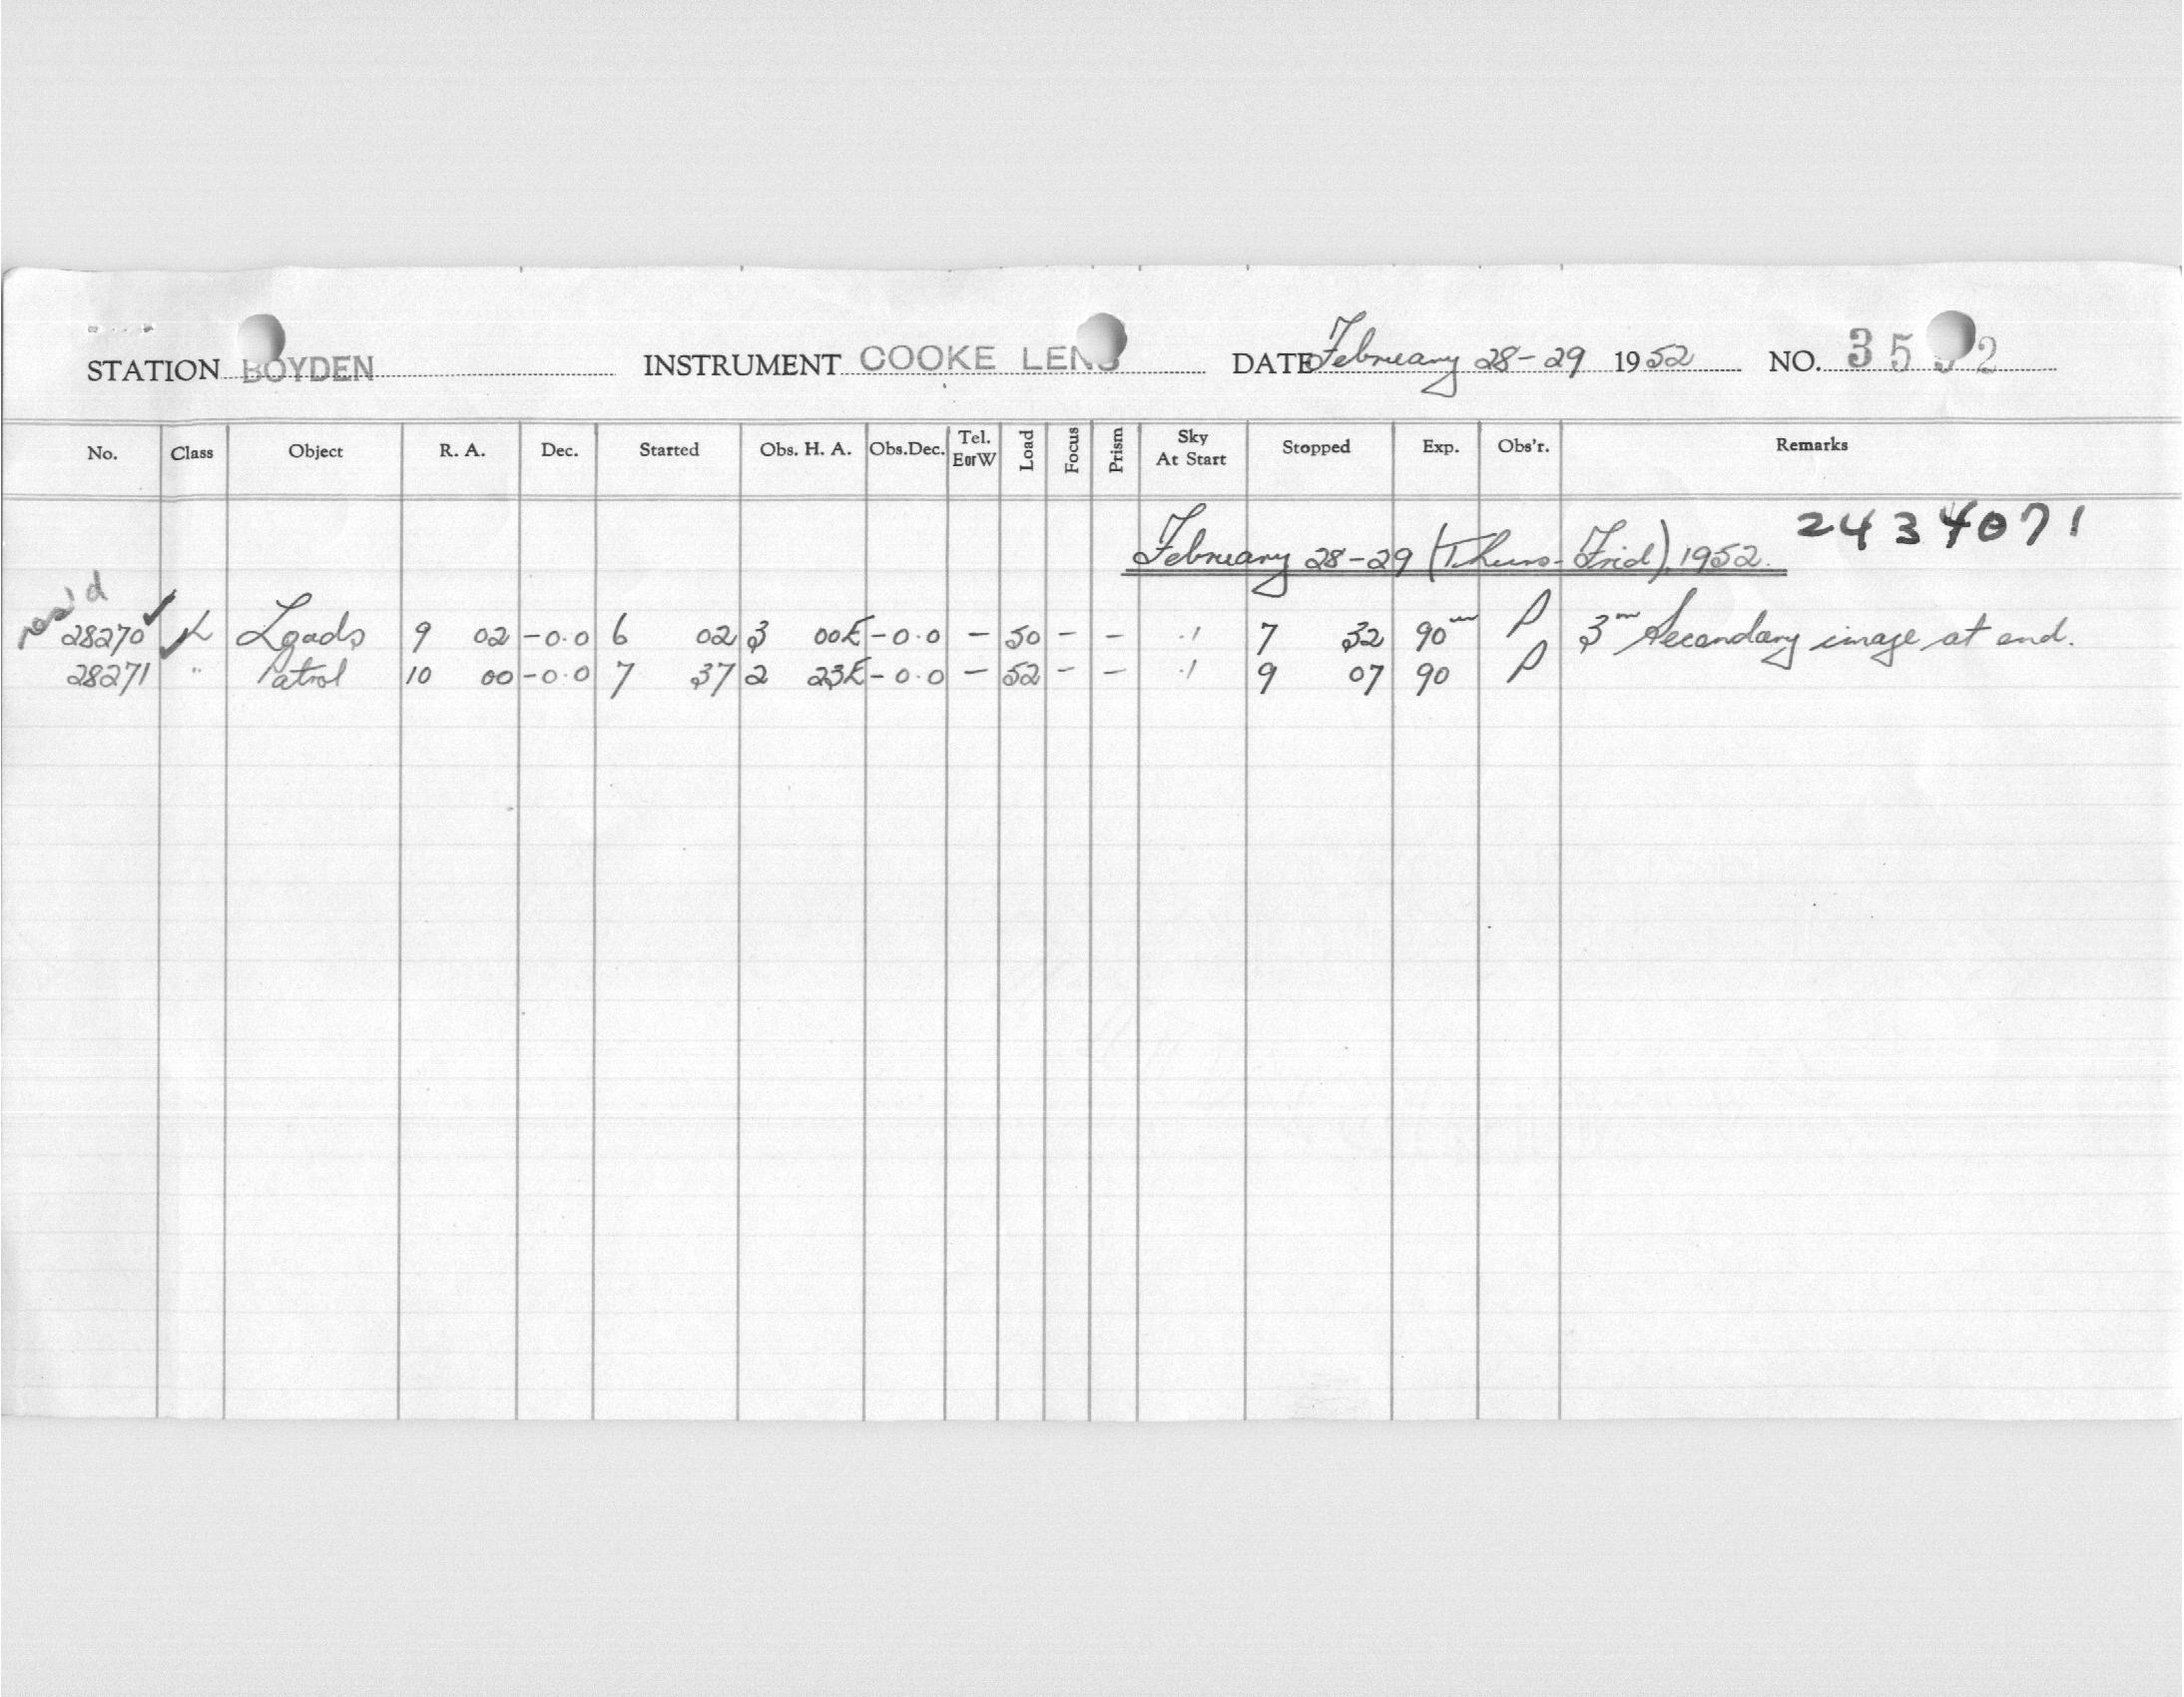 STATION BOYDEN INSTRUMENT COOKE LENS DATE February 28-29 1952 NO. 35 2
No. Class Object R. A. Dec. Started Obs. H. A. Obs.Dec. Tel. EorW Load Focus Prism Sky At Start Stopped Exp. Obs'r. Remarks
February 28-29 (Thurs-Frid). 1952. 2434071
rec'd
28270 L Loads 9 02 -0.0 6 02 3 00E -0.0 - 50 - - .1 7 32 90m P 3m Secondary image at end.
28271 " Patrol 10 00 -0.0 7 37 2 23E -0.0 - 52 - - .1 9 07 90 P